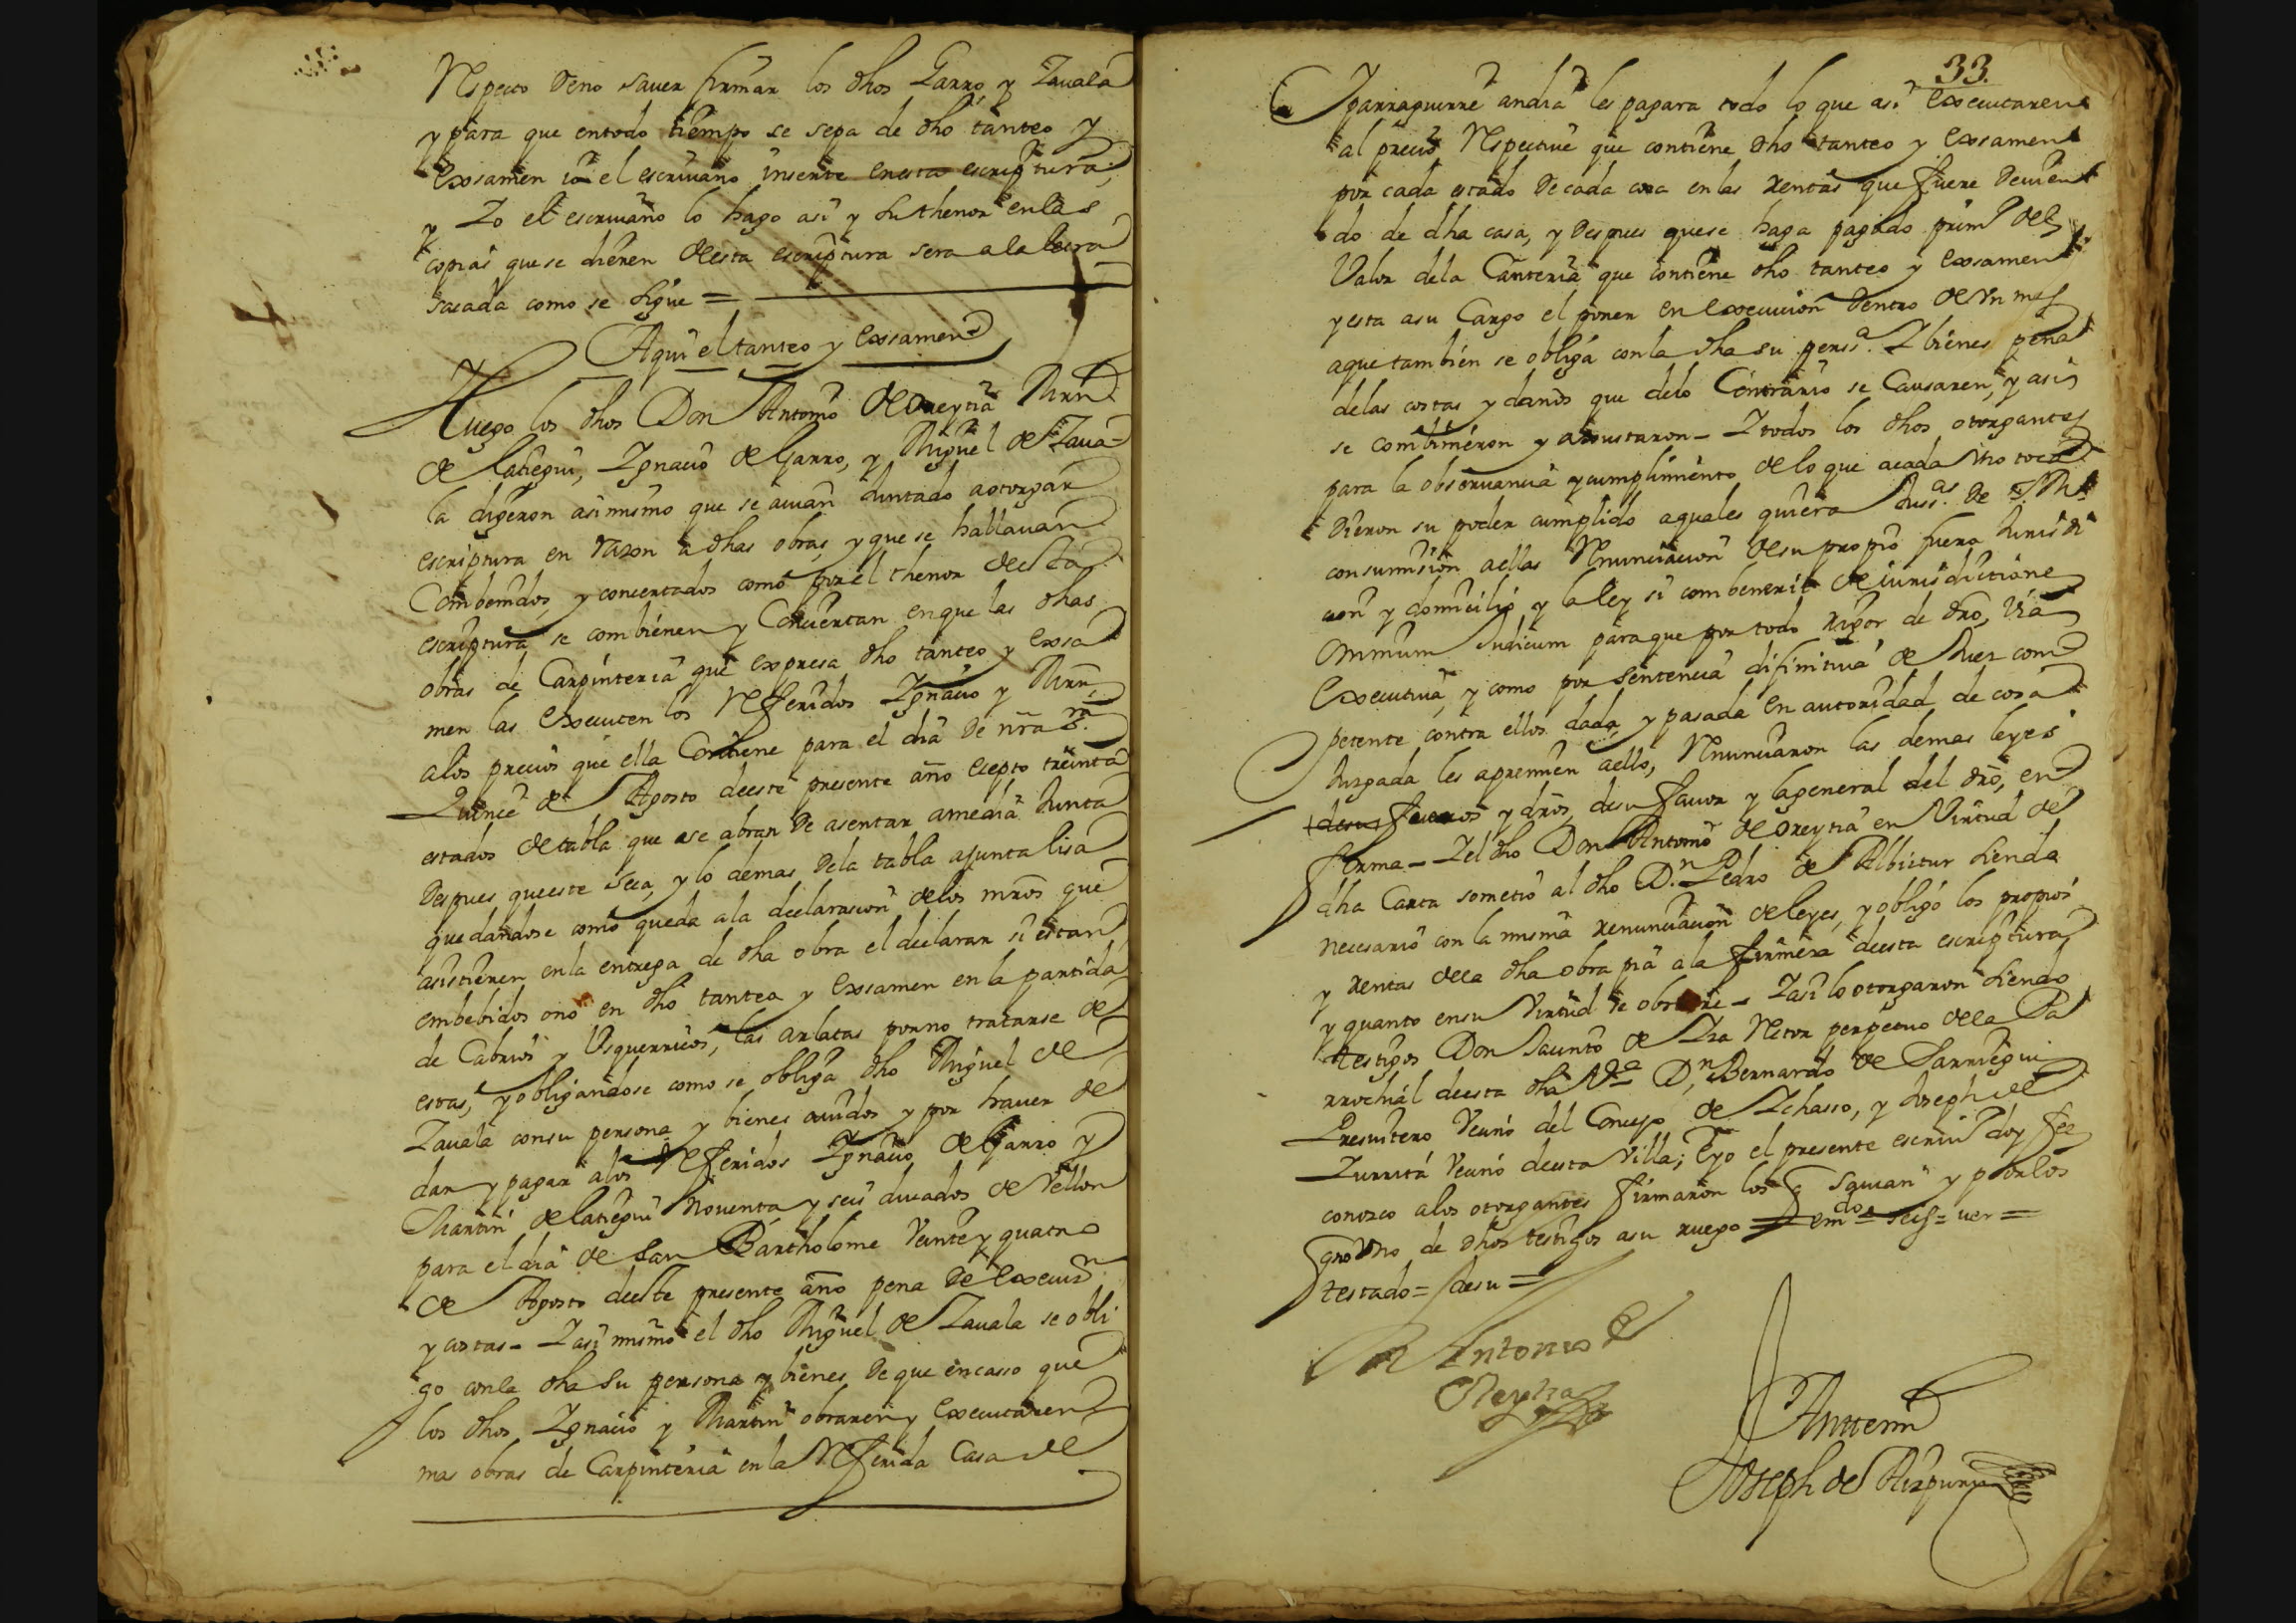 Respecto de no saver firmar los dhos Garro, y Zavala
y para que en todo tiempo se sepa de dho tanteo y
exsamen io el escrivano inserte en esta escriptura,
y Yo el escrivano lo hago asi y su thenor en las
copias que se dieren de esta escriptura sera a la letra
sacada como se sigue =
Aqui el tanteo y exsamen
Luego los dhos Don Antonio de Oreytia Mrn
de Lategui, Ygnacio de Garro, y Miguel de Zava-
la digeron asimismo que se avian Juntado a otorgar
escriptura en razon a dhas obras y que se hallavan
Combenidos, y concertados como por el thenor de esta
escriptura se combienen y Conciertan en que las dhas
obras de Carpinteria que expresa dho tanteo y exsa
men las executen los Referidos Ygnacio y Mrn,
a los precios que ella Contiene para el dia de nra sra
Quince de Agosto de este presente año esepto treinta
estados de tabla que se abran de asentar a media Junta
despues que este seca, y lo demas de la tabla a junta lisa
quedandose como queda a la declarasion de los mros que
asistieren en la entrega de dha obra el declarar si estan
embebidos o no en dho tanteo y exsamen en la partida
de Cabrios y Usquerricos, las arlatas por no tratarse de
estas, y obligandose como se obliga dho Miguel de
Zavala con su persona y bienes avidos y por haver de
dar y pagar a los Referidos Ygnacio de Garro y
Martin de Lategui Noventa y seis ducados de Vellon
para el dia de San Bartholome Veinte y quatro
de Agosto de este presente año pena de execuon
y costas - Y asi mismo el dho Miguel de Zavala se obli
go con la dha su persona y bienes de que en casso que
los dhos Ygnacio y Martin obraren y executaren
mas obras de Carpinteria en la Referida Casa de
33.
Yparraguirre andia les pagara todo lo que asi executaren
al precio Respective que contiene dho tanteo y exsamen
por cada estado de cada cosa en las rentas que fuere devien
do de dha casa, y despues que se haga pagado prim.o del
Valor de la Canteria que contiene dho tanteo y exsamen
y esta a su Cargo el poner en execucion dentro de Vn mes
a que tambien se obliga con la dha su perss.a Y bienes pena
de las costas y daños que de lo Contrario se Causaren, y asi
se combinieron y ajustaron - Y todos los dhos otorgantes
para la observancia y cumplimiento de lo que a cada Vno toca
Dieron su poder cumplido a quales quiera Juss.as de S. M.
con sumision a ellas Renunciacion de su propio fuero Jurisdi
cion y domicilio y la ley si combenerit de iurisdictione
Omnium Judicum para que por todo rigor de dro, via
Executiva, y como por sentencia difinitiva de Juez com
petente contra ellos dada, y pasada en autoridad de cosa
Juzgada les apremien a ello, Renunciaron las demas leyes
desu fueros y dros, de su favor y la general del dro, en
forma - Y el dho Don Antonio de Oreytia en Virtud de
dha Carta sometio al dho D.n Pedro de Albictur siendo
necesario con la misma renunciacion de leyes, y obligó los propios
y rentas de la dha obra pia a la firmeza de esta escriptura
y quanto en su Virtud se obrare - Y asi lo otorgaron siendo
testigos Don Jacinto de Retor perpetuo de la Pa
rrochial de esta dha V.a D.n Bernardo de Sarriegui
Presvitero Vecino del Concejo de Ychasso, y Joseph de
Zurrita Vecino de esta Villa; E yo el presente escriv.o doy fee
conozco a los otorgantes firmaron los q savian y por los
q no Vno de dhos testigos a su ruego = em.do = seis = ver =
testado = desu =
D Antonio de
Oreytia
Antemi
Joseph de Aizpuru